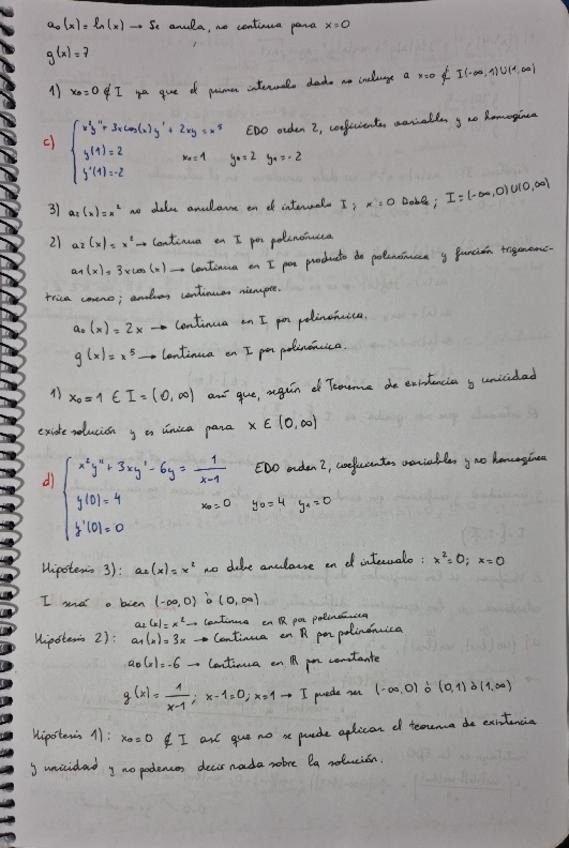 a₀(x) = ln(x) → Se anula, no continua para x=0
g(x) = 7
1) x₀=0 ∉ I ya que el primer intervalo dado no incluye a x=0 ∉ I(-∞,1)∪(1,∞)
c) { x²y'' + 3xcos(x)y' + 2xy = x⁵ EDO orden 2, coeficientes variables y no homogénea
y(1) = 2 x₀=1 y₀=2 y₁=-2
y'(1) = -2
3) a₂(x) = x² no debe anularse en el intervalo I ; x²=0 Doble ; I = (-∞,0)∪(0,∞)
2) a₂(x) = x² → Continua en I por polinómica
a₁(x) = 3xcos(x) → Continua en I por producto de polinómica y función trigonomé-
trica coseno; ambas continuas siempre.
a₀(x) = 2x → Continua en I por polinómica.
g(x) = x⁵ → Continua en I por polinómica.
1) x₀=1 ∈ I = (0,∞) así que, según el Teorema de existencia y unicidad
existe solución y es única para x ∈ (0,∞)
d) { x²y'' + 3xy' - 6y = 1/(x-1) EDO orden 2, coeficientes variables y no homogénea
y(0) = 4 x₀=0 y₀=4 y₁=0
y'(0) = 0
Hipótesis 3): a₂(x) = x² no debe anularse en el intervalo : x²=0; x=0
I será o bien (-∞,0) ó (0,∞)
a₂(x) = x² → Continua en ℝ por polinómica
Hipótesis 2): a₁(x) = 3x → Continua en ℝ por polinómica
a₀(x) = -6 → Continua en ℝ por constante
g(x) = 1/(x-1) ; x-1=0; x=1 → I puede ser (-∞,0) ó (0,1) ó (1,∞)
Hipótesis 1): x₀=0 ∉ I así que no se puede aplicar el teorema de existencia
y unicidad y no podemos decir nada sobre la solución.